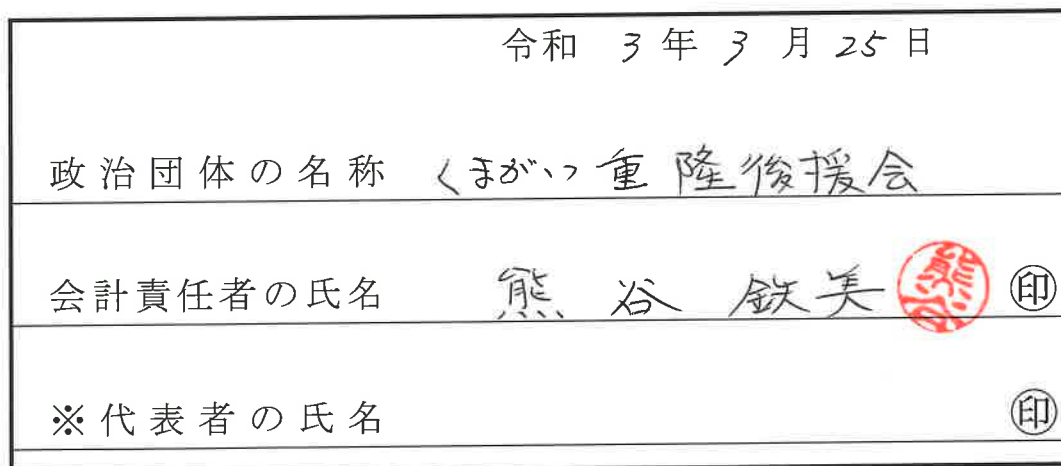 令和 3年 3月 25日
政治団体の名称 くまがい重隆後援会
会計責任者の氏名 熊谷 鉄美 熊谷 ㊞
※代表者の氏名 ㊞